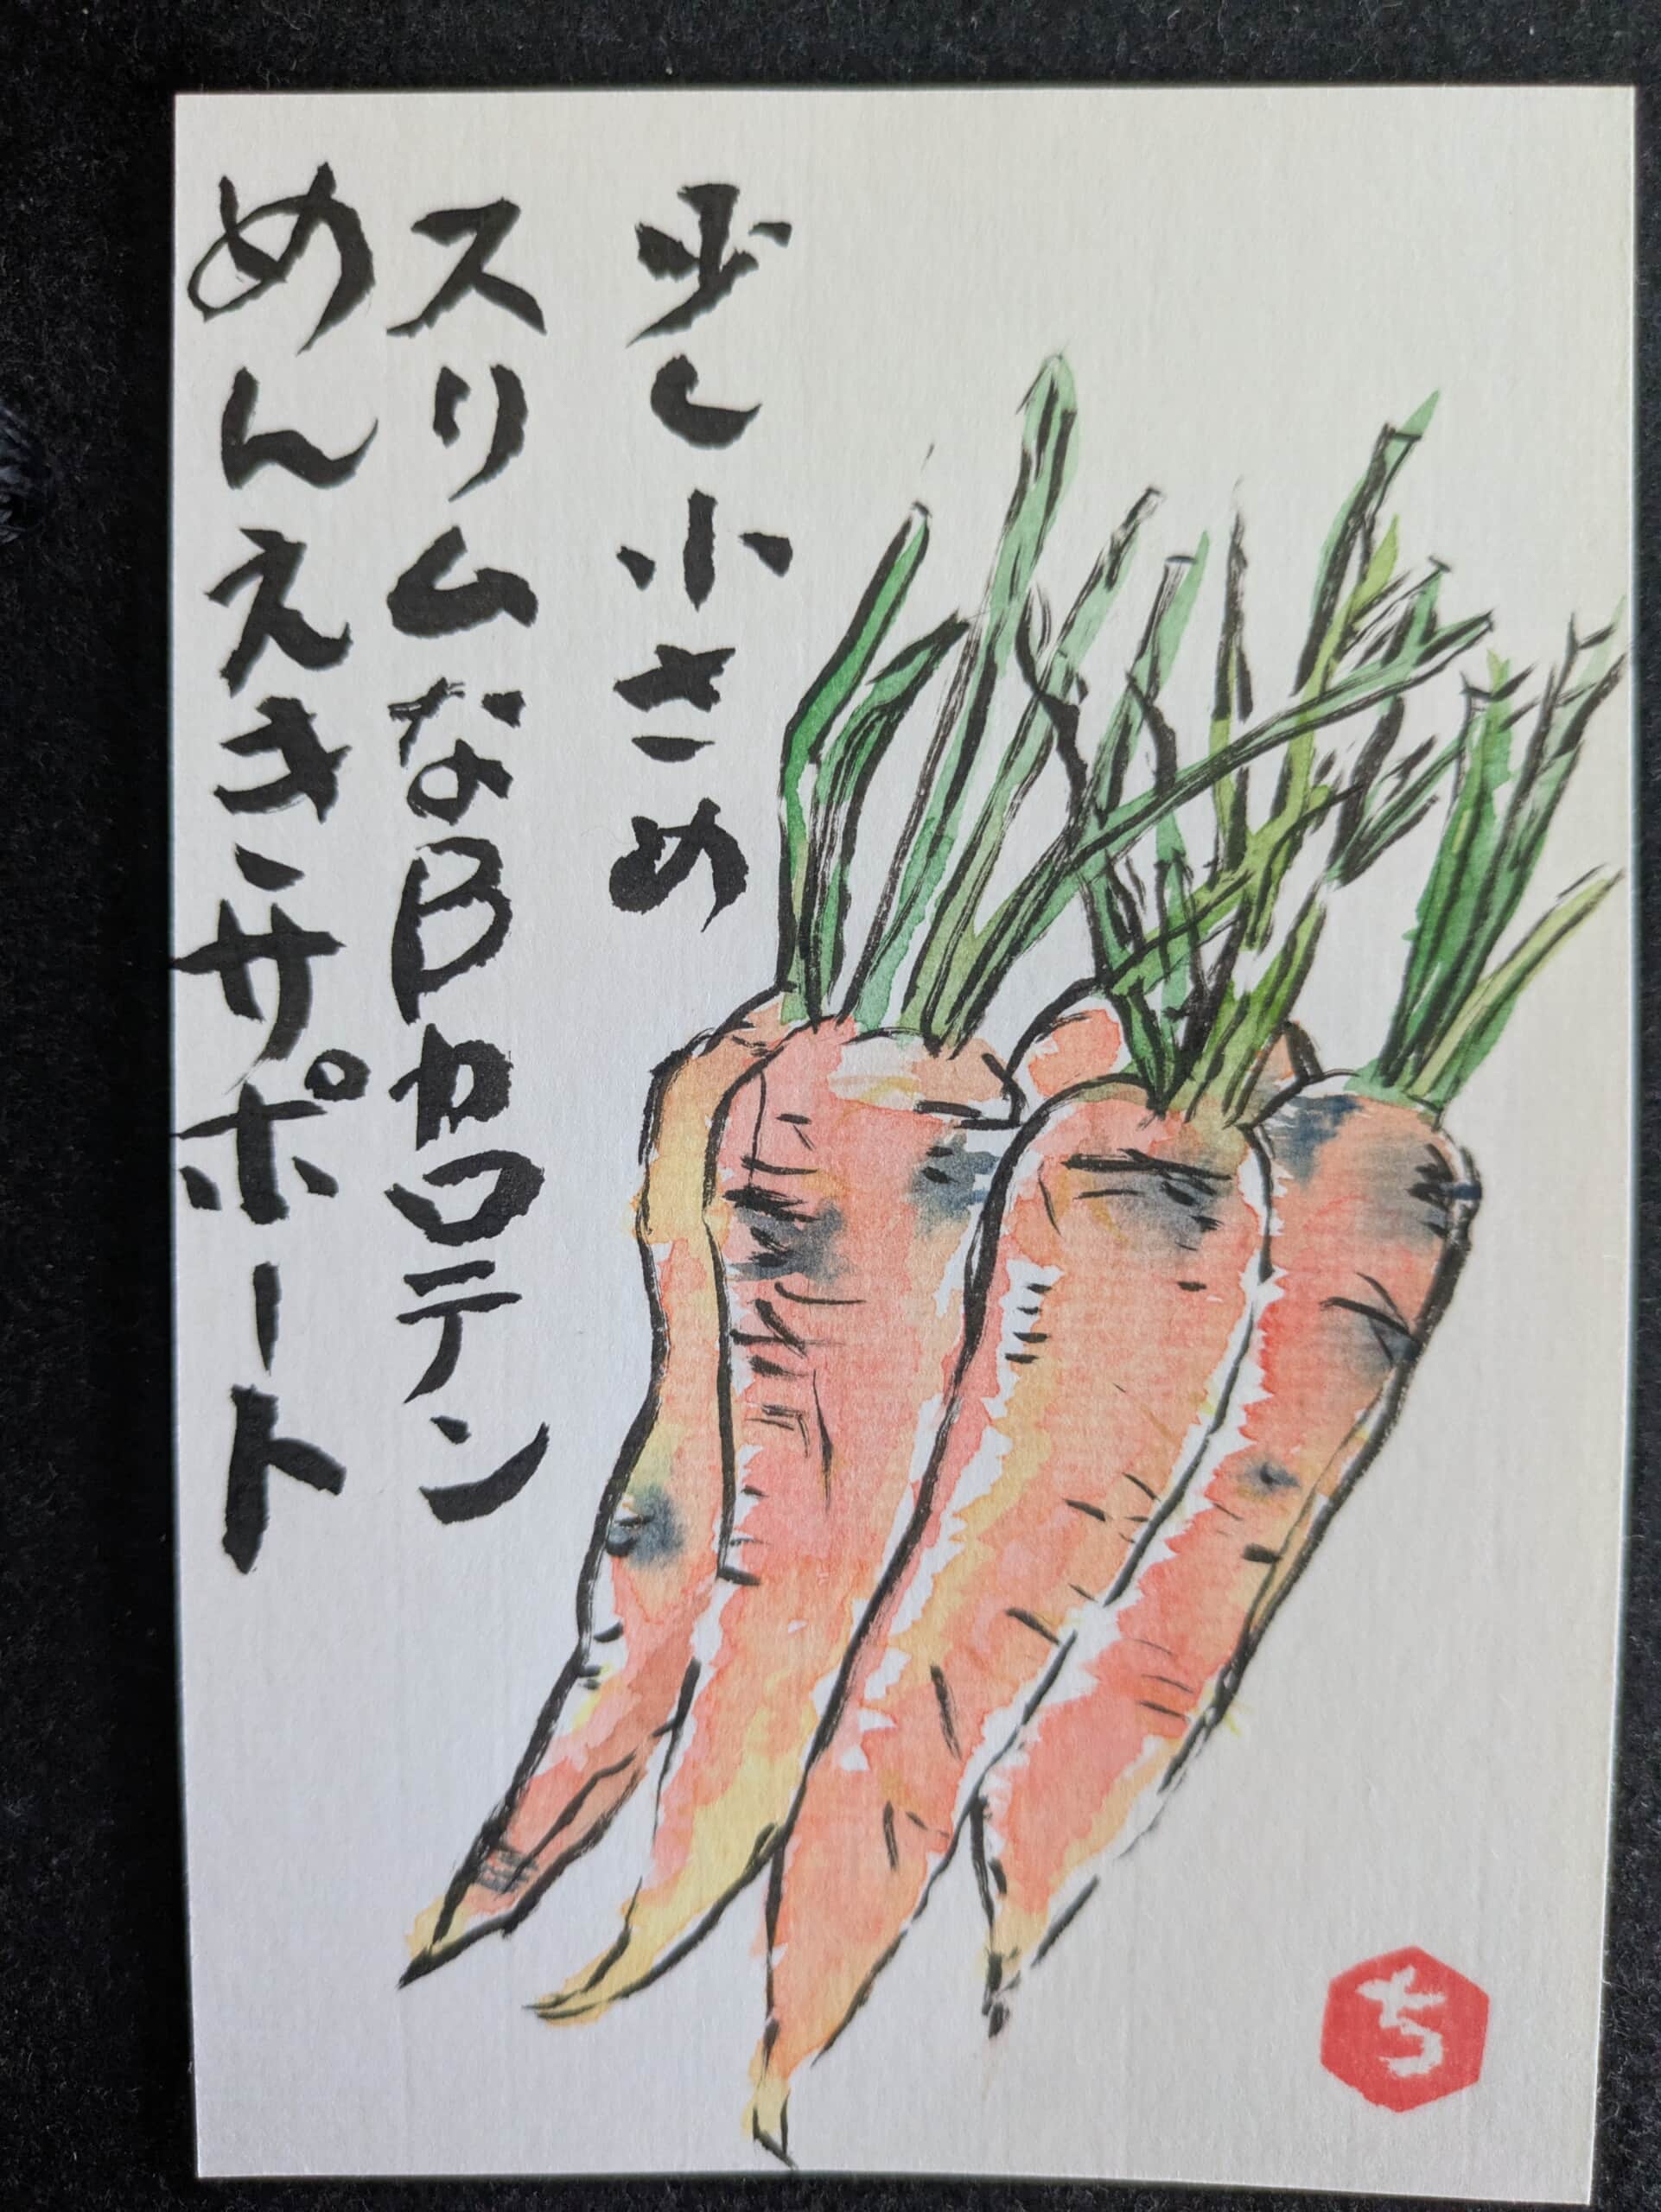 少し小さめ
スリムなβカロテン
めんえきサポート
ち